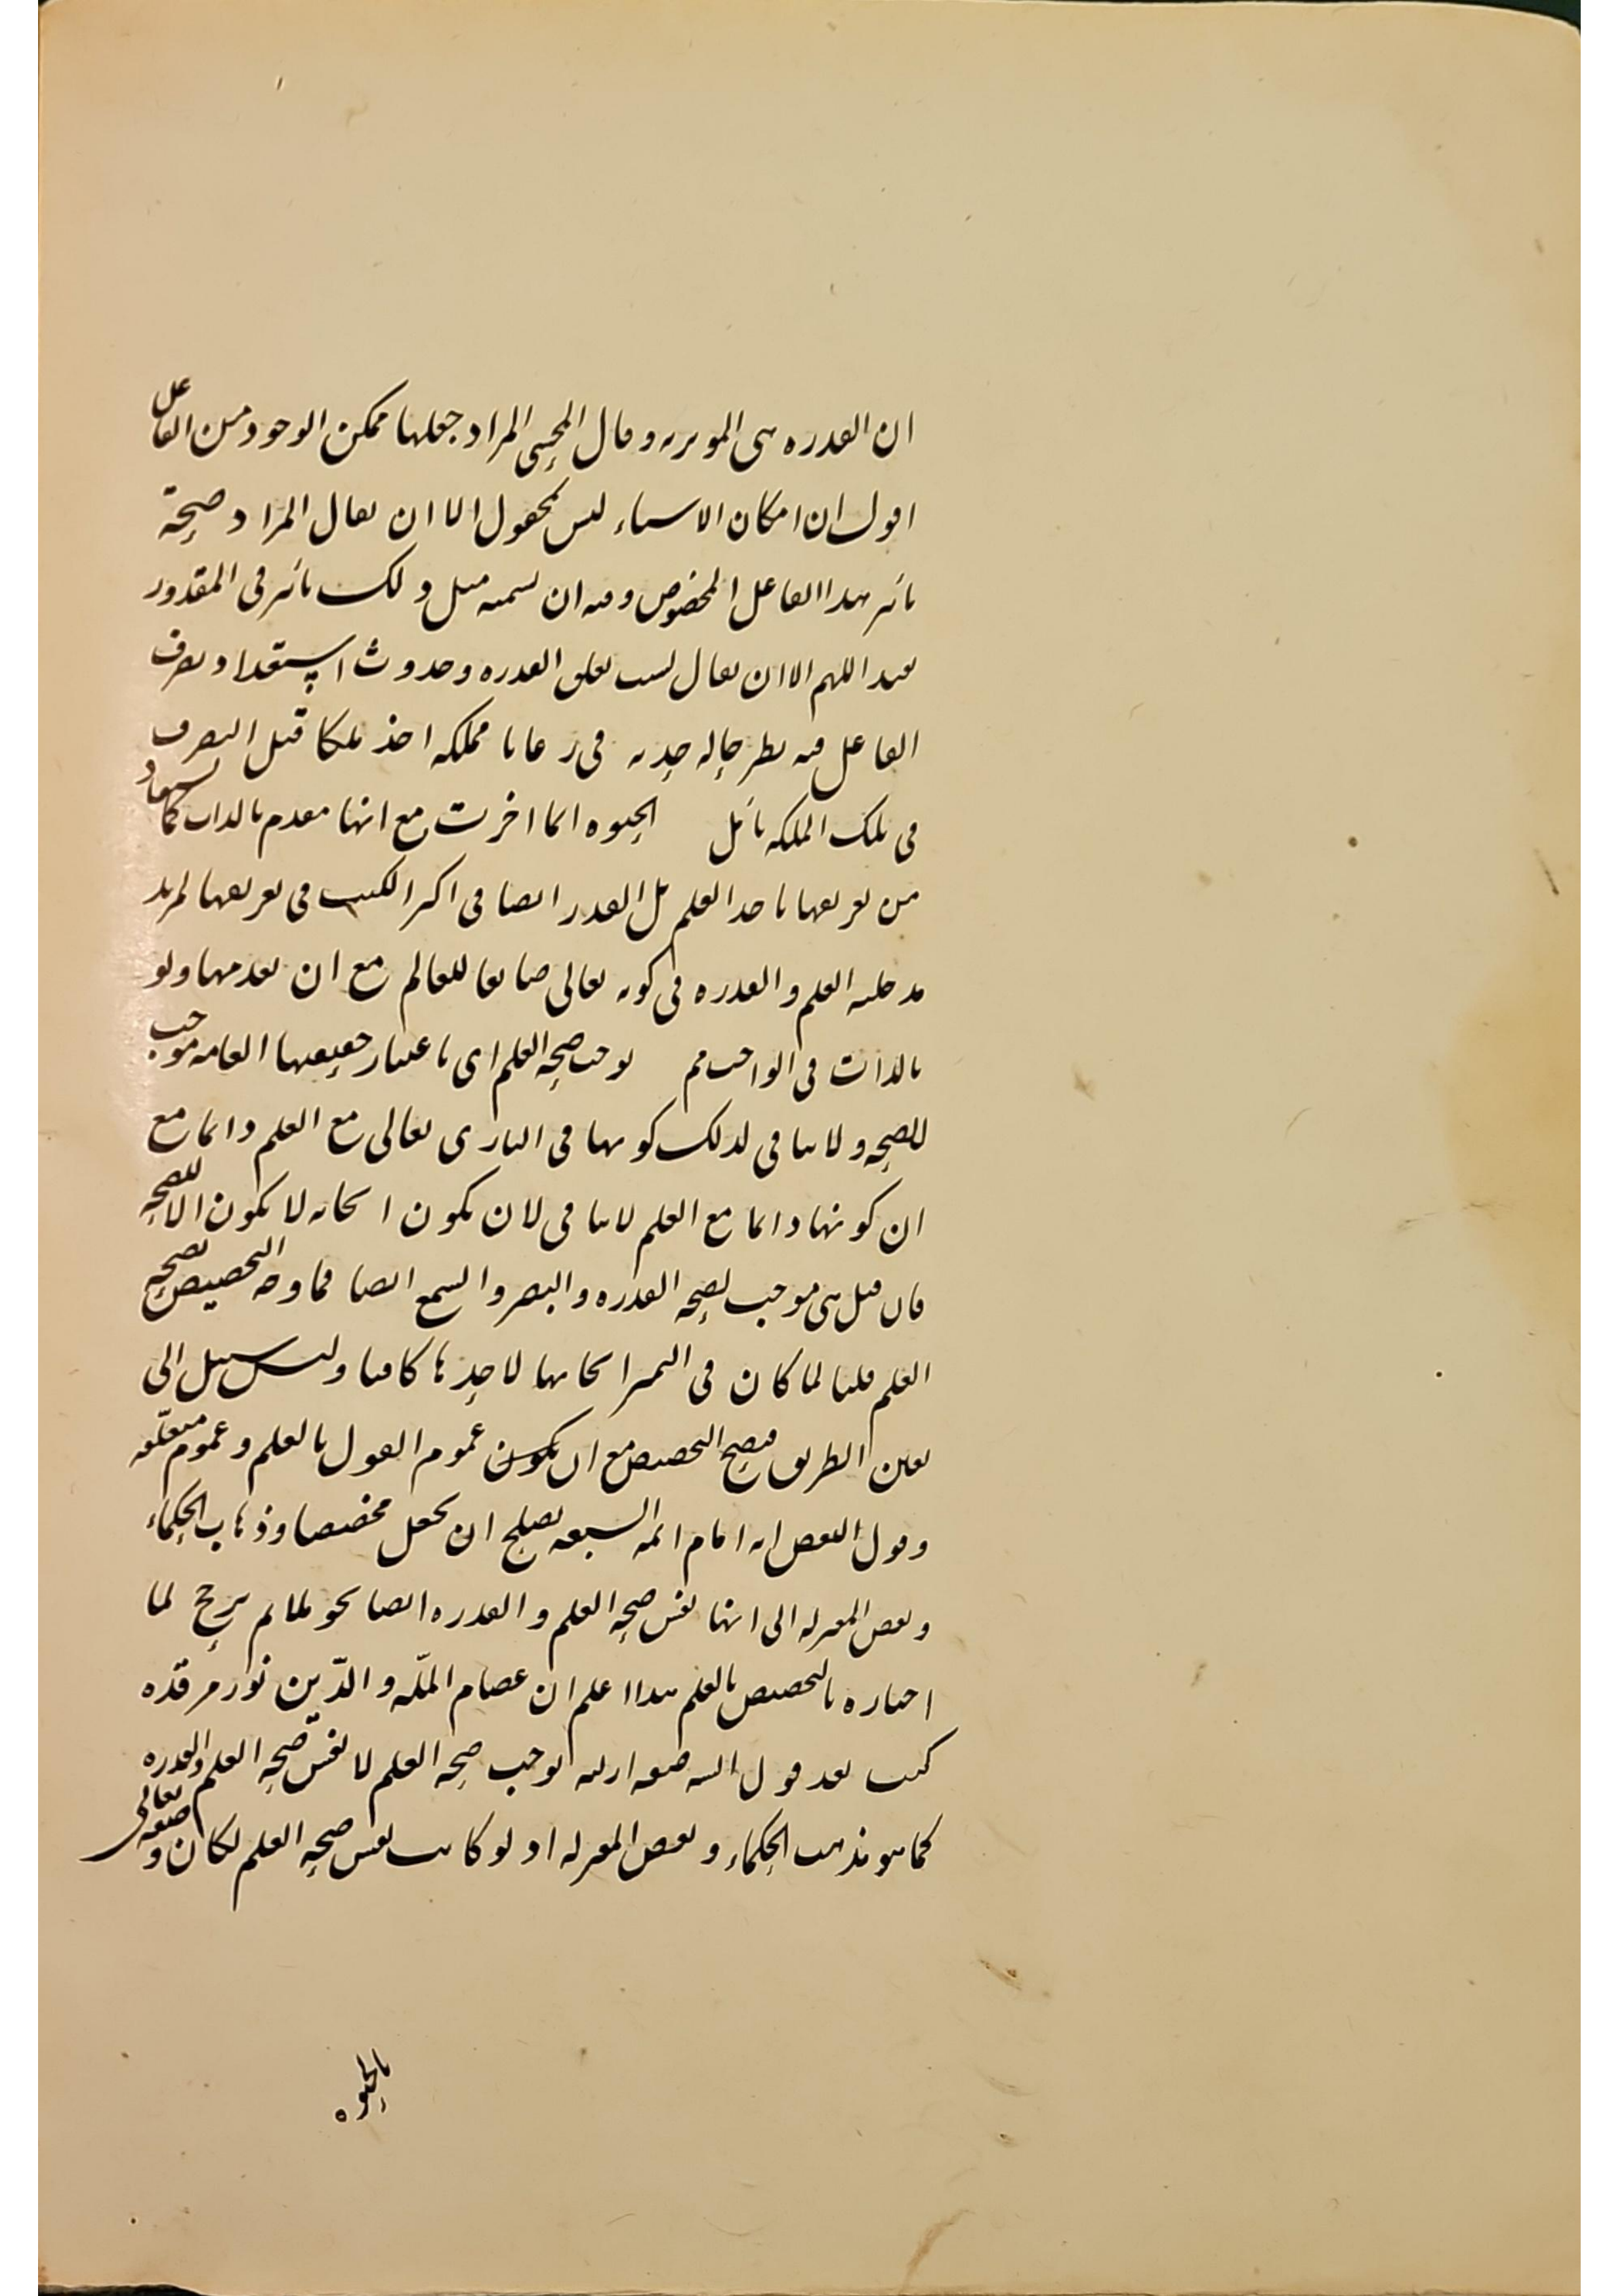 ان القدره هى الموثريه وقال المحشى المراد جعلها ممكن الوجود من الفاعل
اقول ان امكان الاشياء ليس بمجعول الا ان يقال المراد صحة
تاثير هذا الفاعل المخصوص وفيه ان تسميه مثل ذلك تاثير فى المقدور
بعيد اللهم الا ان يقال بسبب تعلق القدره وحدوث استعداد تصرف
الفاعل فيه يظهر حاله جديده فى رعايا مملكه اخذ ملكا قبل التصرف
فى تلك الملكه تامل الحيوه انما اخرت مع انها مقدم بالذات كما يستفاد
من تعريفها باخذ العلم بل القدر ايضا فى اكثر الكتب فى تعريفها لمزيد
مدخليه العلم والقدره فى كونه تعالى صانعا للعالم مع ان تقدمها ولو
بالذات فى الواجب مم توجب صحه العلم اى باعتبار حقيقتها العامه موجب
للصحه ولا ينافى لذلك كونها فى البارى تعالى مع العلم دائما مع
ان كونها دائما مع العلم لا ينافى لان يكون ايجابه لا يكون الا للصحه
فان قيل هى موجب لصحه القدره والبصر والسمع ايضا فما وجه التخصيص بصحه
العلم قلنا لما كان فى التميز ايجابها لاحدها كافيا وليس سبيل الى
تعين الطريق فيصح التخصيص مع ان يكون عموم القول بالعلم وعموم متعلقه
وقول البعص انه امام ائمه السبعه يصلح ان يجعل مخصصا وذهاب الحكماء
وبعض المعتزله الى انها نفس صحه العلم والقدره ايضا نحو ملائم يرجح لما
اختاره بالتخصيص بالعلم هذا اعلم ان عصام الملّه والدّين نور مرقده
كتب بعد قول الشه صفه ازليه توجب صحه العلم لا نفس صحه العلم والقدره
كما هو مذهب الحكماء وبعض المعتزله اذ لو كانت نفس صحه العلم لكان وصفه تعالى
بالحيوه